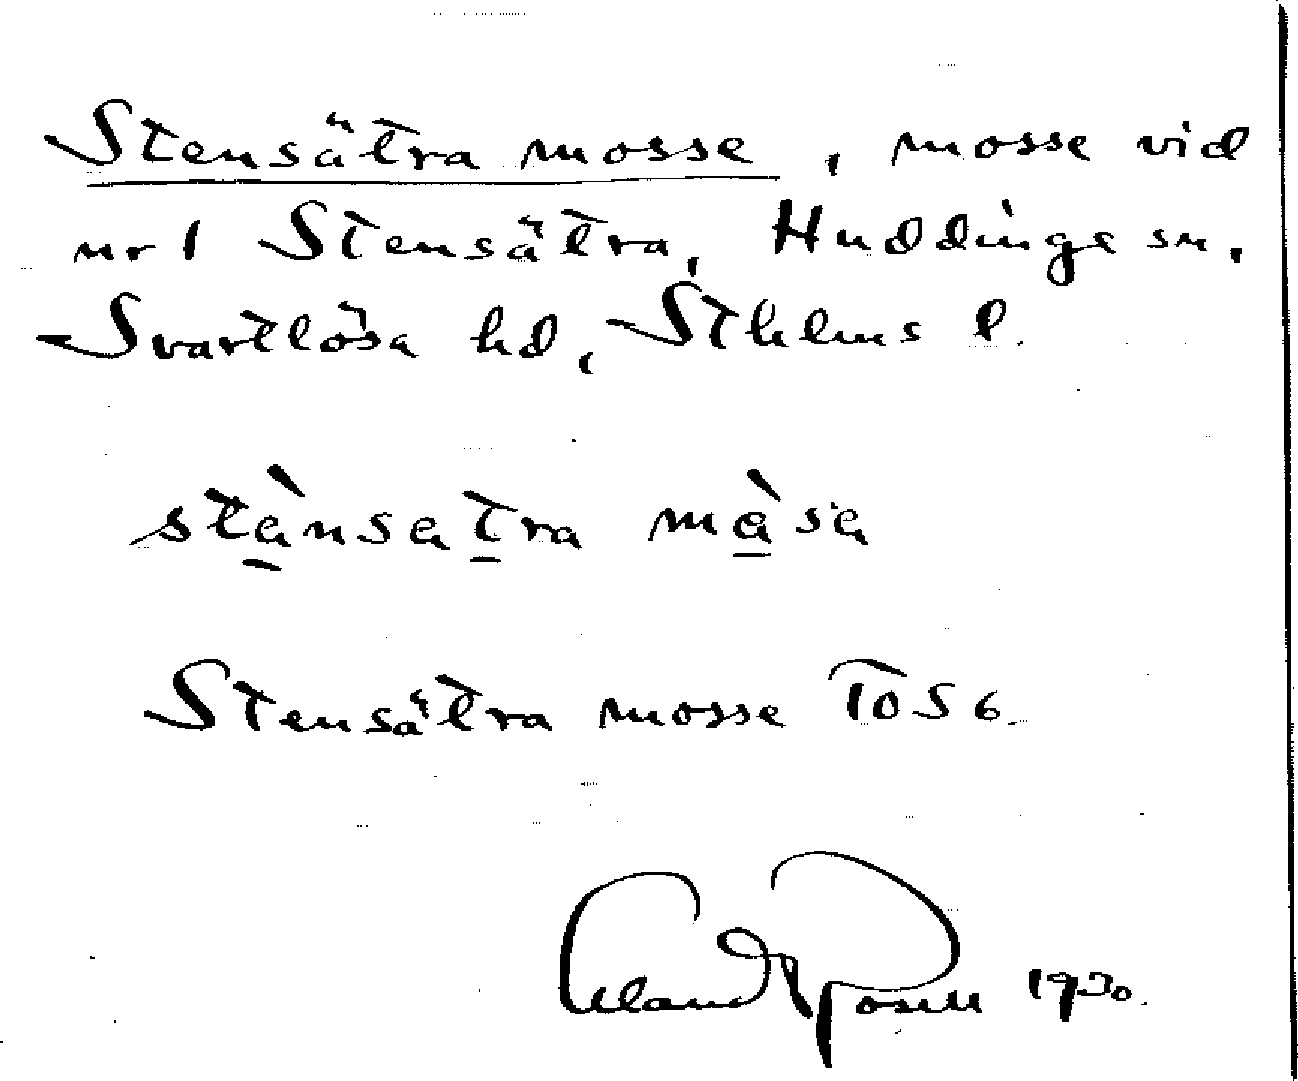 Stensätra mosse, mosse vid
nr 1 Stensätra, Huddinge sn,
Svartlösa hd, Sthlms l.
stὰnsatra mὰsa
Stensätra mosse TOS 6.
Rosell 1930.